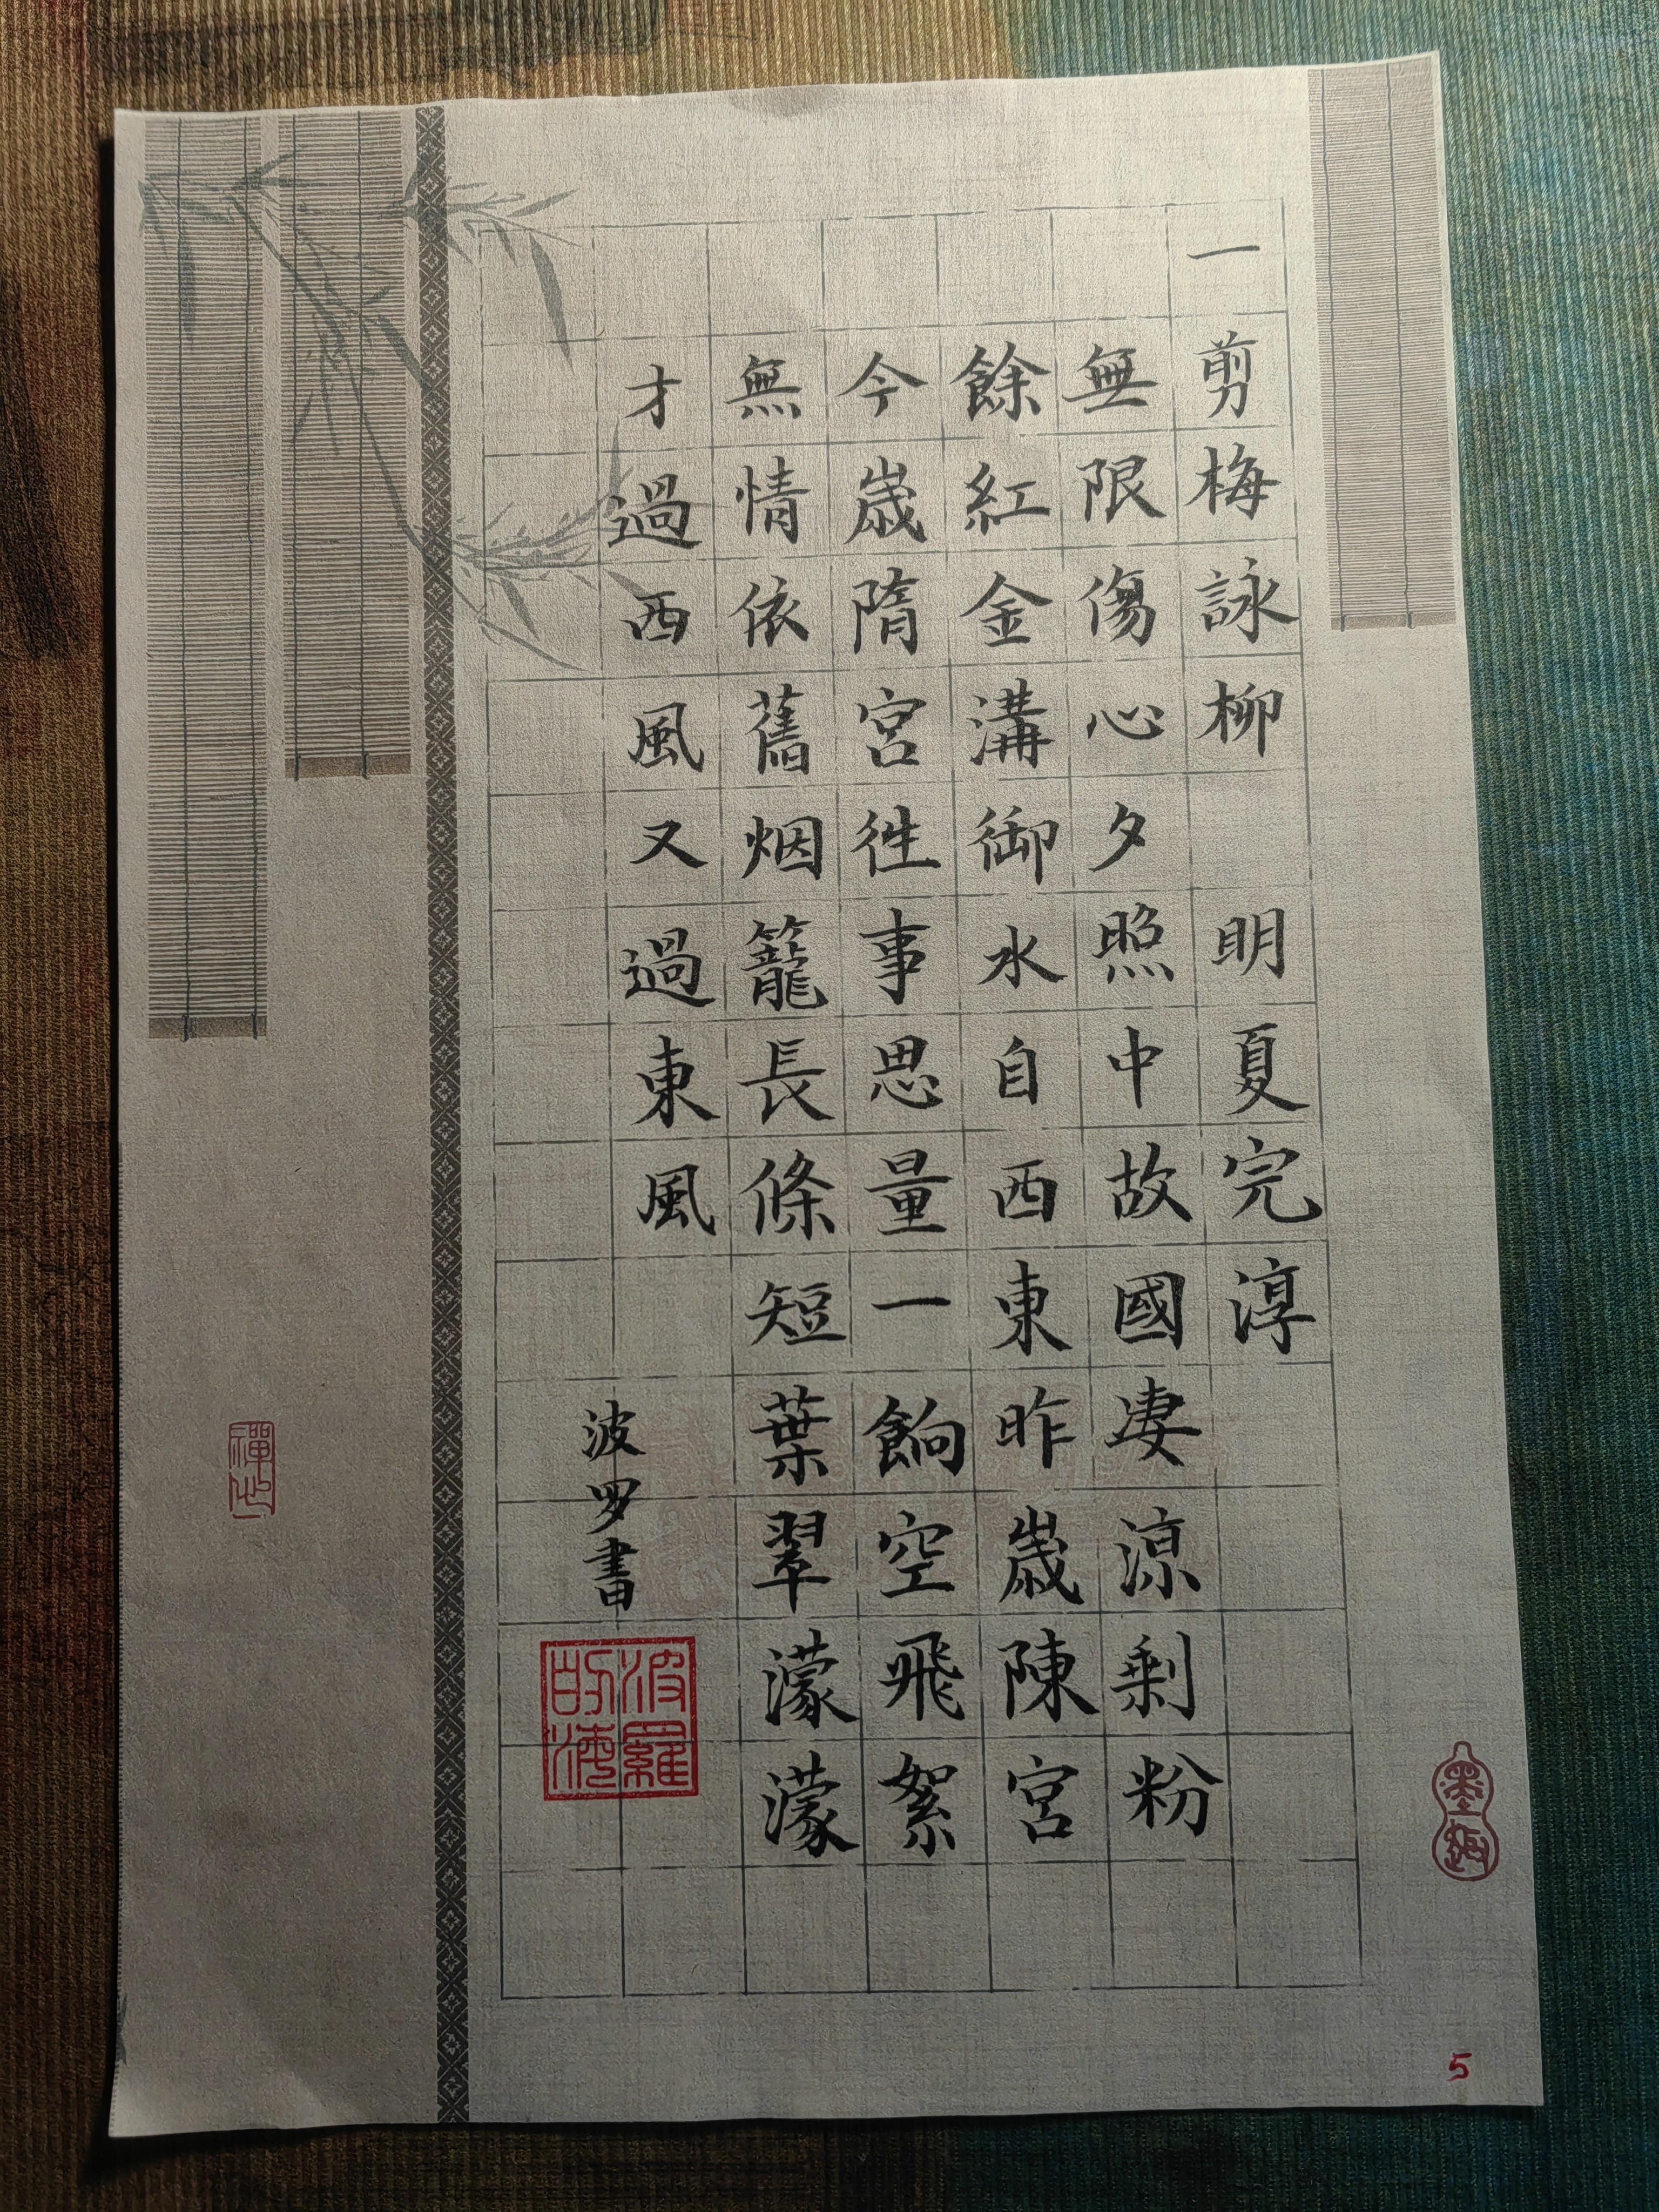 一剪梅詠柳 明夏完淳
無限傷心夕照中故國凄涼剩粉
餘紅金溝御水自西東昨歲陳宮
今歲隋宮往事思量一餉空飛絮
無情依舊烟籠長條短葉翠濛濛
才過西風又過東風
波罗書
波羅的海
墨趣
5